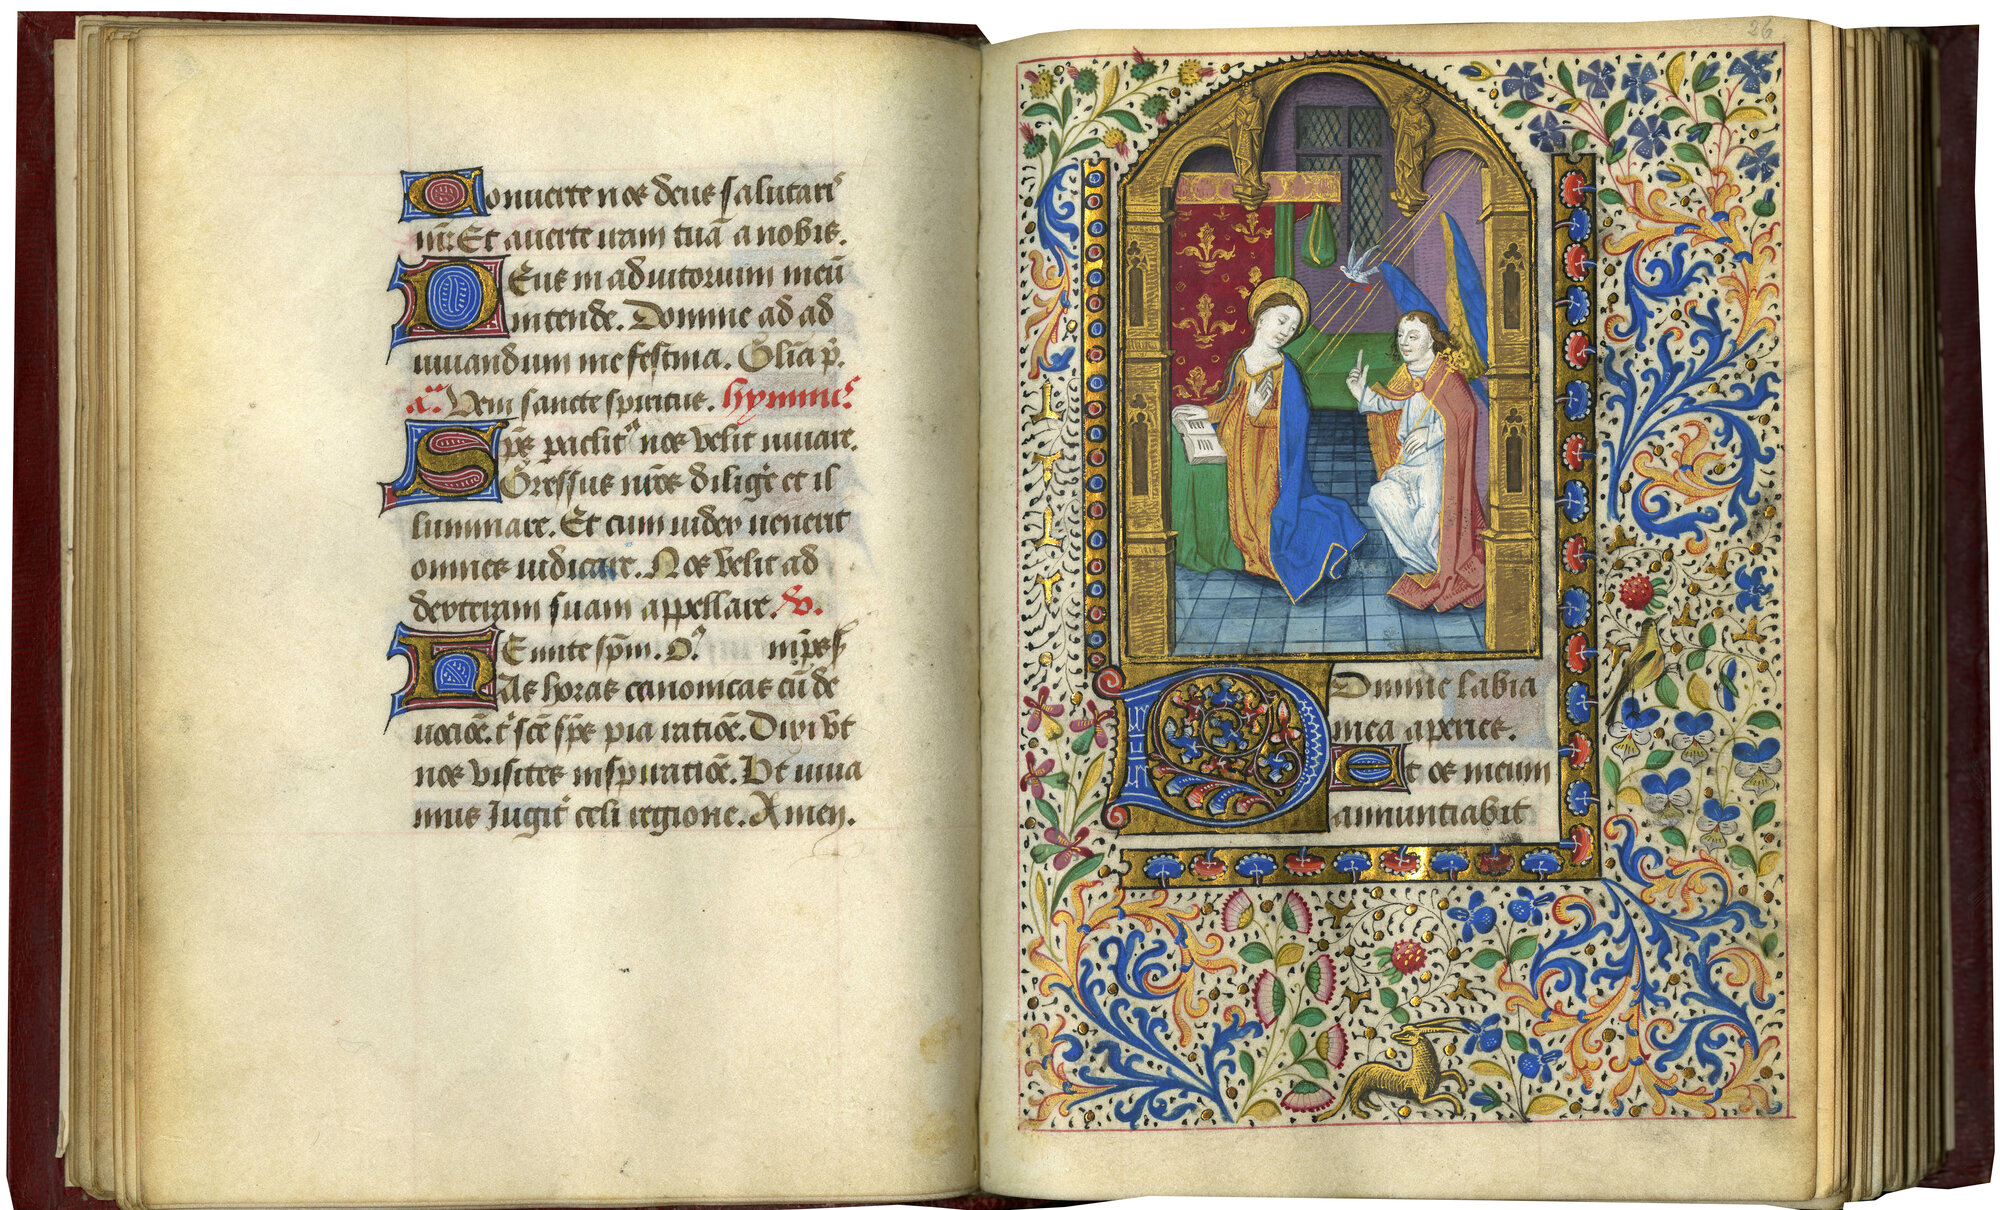 Conuerte nos deus salutari
nr̄. Et auerte iram tuā a nobis.
Deus in adiutorium meū
intende. Domine ad ad
iuuandum me festina. Gl̄ia p̄.
an̄. Veni sancte spiritus. hymnus
Sp̄s paclit' nos velit iuuare.
Gressus nr̄os diligēt et il
luminare. Et cum iudex uenerit
omnes iudicare. Nos velit ad
dexteram suam appellare. v.
Emitte spm̄. Or̄.
Has horas canonicas cū de
uociōe. t' scē sp̄s pia ratiōe. Dixi v̄t
nos visites inspiratiōe. Vt viua
mus iugit' celi regione. Amen.
26
Domine labia
mea aperies.
Et os meum
annuntiabit